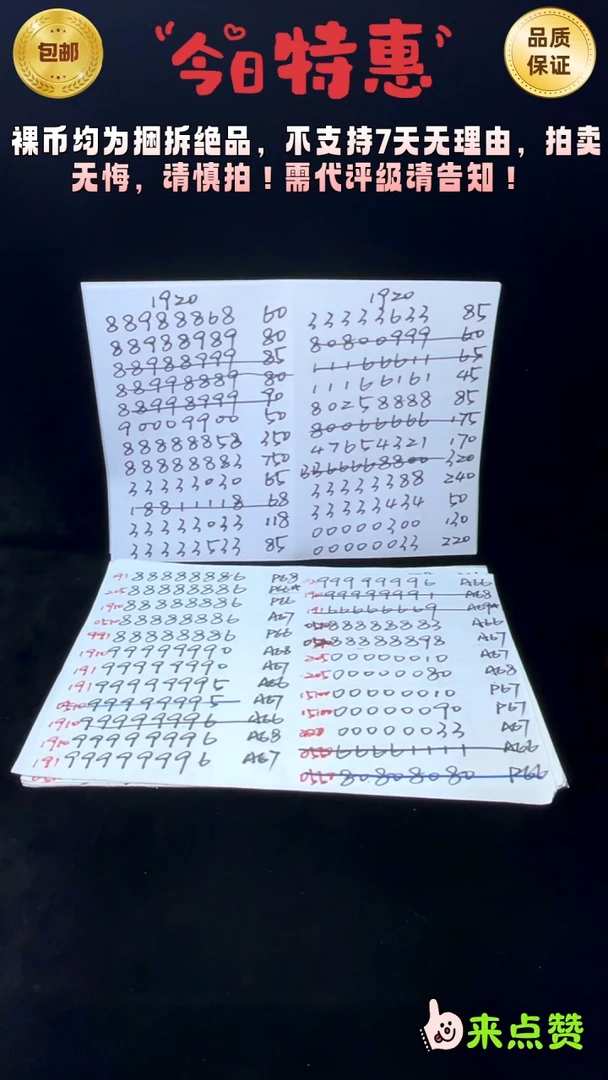 包邮
今日特惠
品质
保证
裸币均为捆拆绝品，不支持7天无理由，拍卖
无悔，请慎拍！需代评级请告知！
1920
88988868 60
88988989 80
88988999 85
88998889 80
88998999 90
90009900 50
88888858 350
88888883 750
33333030 65
18811118 68
33333033 118
33333533 85
1920
33333633 85
80800999 60
11166611 65
11166161 45
80258888 85
80066666 175
47654321 170
3366668800 320
33333388 240
33333434 50
00000300 130
00000033 220
191 88888886 P68
205 88888886 P66*
1910 88888886 P66
0510 88888886 A67
991 88888886 P66
1910 99999990 A68
191 99999990 A67
191 99999995 A66
0510 99999995 A67
1910 99999996 A66
1910 99999996 A68
191 99999996 A67
99999996 A66
190 99999991 A68
191 66666669 A69*
0510 88888883 A66
88888898 A67
205 00000010 A67
205 00000080 A68
1510 00000010 P67
1510 00000090 P67
00000033 A67
0510 66661111 A66
0510 80808080 P66
来点赞